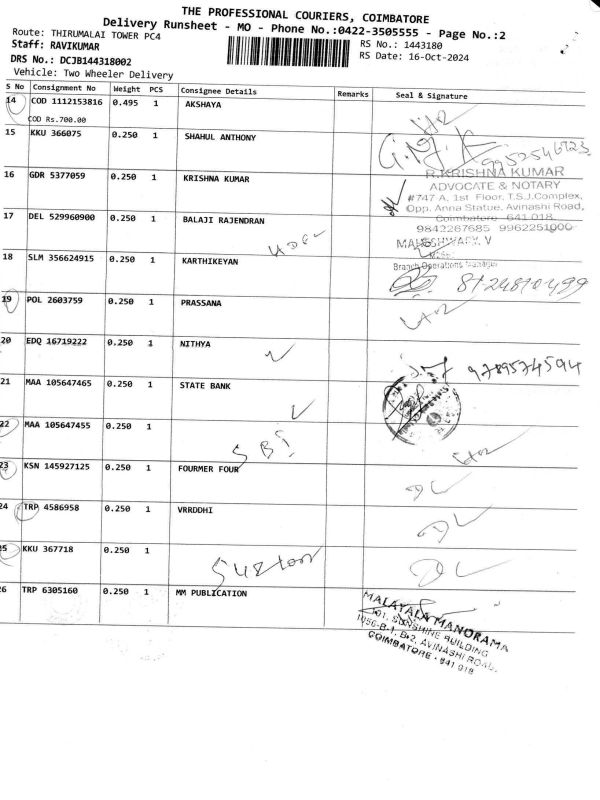 THE PROFESSIONAL COURIERS, COIMBATORE
Delivery Runsheet - MO - Phone No.:0422-3505555 - Page No.:2
Route: THIRUMALAI TOWER PC4
Staff: RAVIKUMAR
RS No.: 1443180
DRS No.: DCJB144318002
RS Date: 16-Oct-2024
Vehicle: Two Wheeler Delivery
S No Consignment No Weight PCS Consignee Details Remarks Seal & Signature
14 COD 1112153816 0.495 1 AKSHAYA
COD Rs.700.00
15 KKU 366075 0.250 1 SHAHUL ANTHONY
9952546723
16 GDR 5377059 0.250 1 KRISHNA KUMAR
R.KRISHNA KUMAR
ADVOCATE & NOTARY
#747-A, 1st Floor, T.S.J.Complex,
Opp. Anna Statue, Avinashi Road,
Coimbatore - 641 018
9842267685 9962251000
17 DEL 529960900 0.250 1 BALAJI RAJENDRAN
MAHESHWARY. V
Branch Operations Manager
18 SLM 356624915 0.250 1 KARTHIKEYAN
8124810499
19 POL 2603759 0.250 1 PRASSANA
20 EDQ 16719222 0.250 1 NITHYA
9789574594
21 MAA 105647465 0.250 1 STATE BANK
22 MAA 105647455 0.250 1
SBI
23 KSN 145927125 0.250 1 FOURMER FOUR
DL
24 TRP 4586958 0.250 1 VRRDDHI
DL
25 KKU 367718 0.250 1
DL
26 TRP 6305160 0.250 1 MM PUBLICATION
MALAYALA MANORAMA
101, SUNSHINE BUILDING
1056-B-1, B-2, AVINASHI ROAD,
COIMBATORE - 641 018